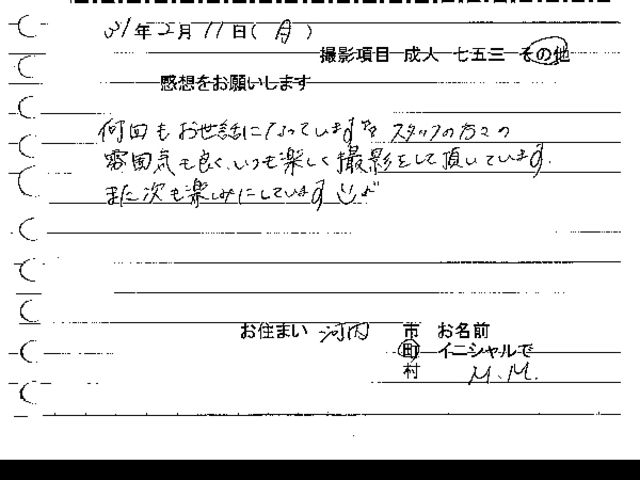 31年2月11日(月)
撮影項目 成人 七五三 その他
感想をお願いします
何回もお世話になっています☆☆ スタッフの方々の
雰囲気も良く、いつも楽しく撮影をして頂いています。
また次も楽しみにしています
お住まい 河内 市 お名前
町 イニシャルで
村 M.M.